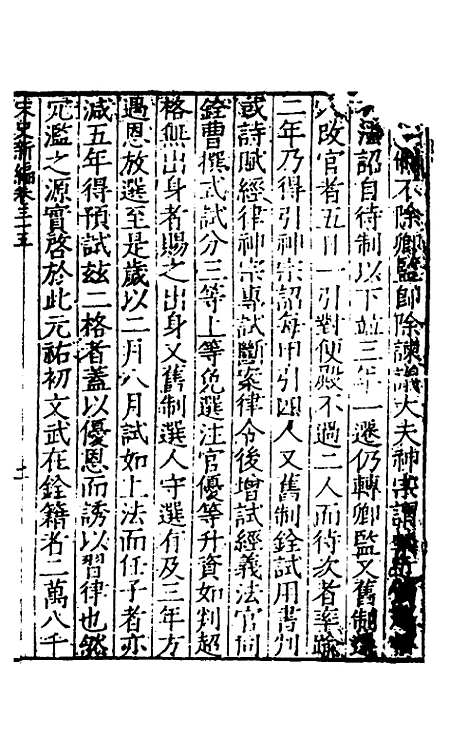 不除卿監即除諫議大夫神宗
法詔自待制以下並三年一遷仍轉卿監又舊制選
人改官者五日一引對便殿不過二人而待次者率踰
二年乃得引神宗詔每甲引四人又舊制銓試用書判
或詩賦經律神宗專試斷案律令後增試經義法官同
銓曹撰式試分三等上等免選注官優等升資如判超
格無出身者賜之出身又舊制選人守選有及三年方
遇恩放選至是歲以二月八月試如上法而任子者亦
減五年得預試玆二格者蓋以優恩而誘以習律也然
宂濫之源實啓於此元祐初文武在銓籍者二萬八千
宋史新編卷三十五